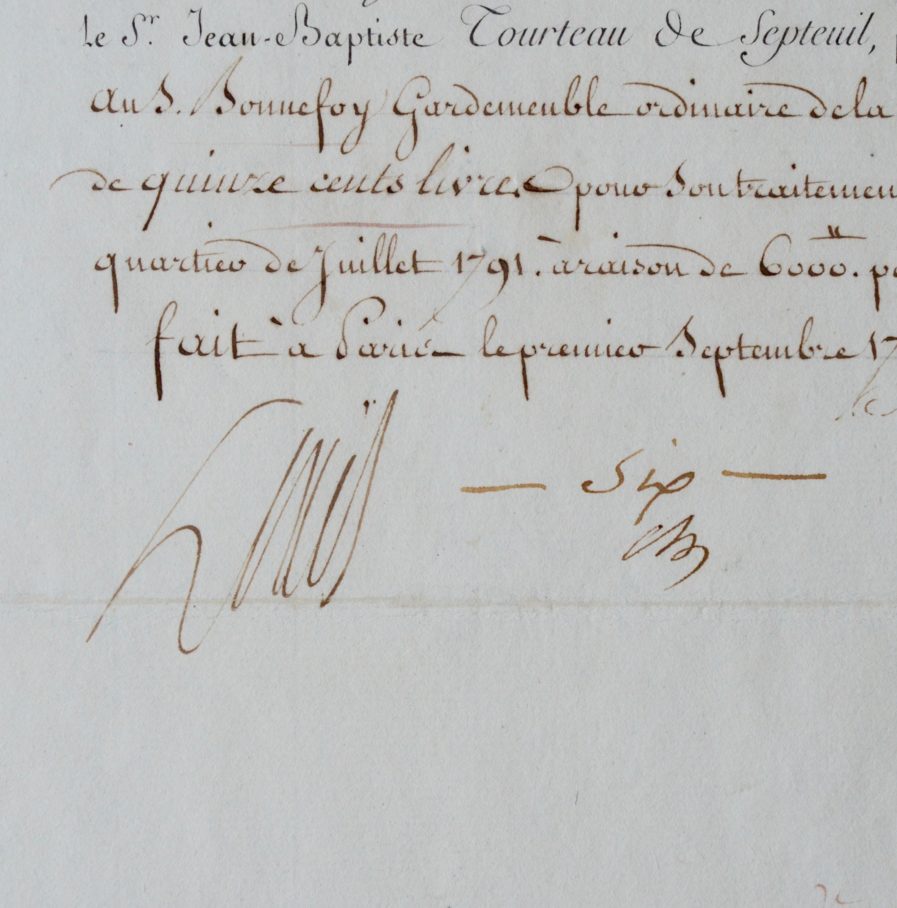 Le Sr. Jean-Baptiste Tourteau De Septeuil,
au S. Bonnefoy Gardemeuble ordinaire de la
de quinze cents livres pour Son traitemen
quartier de Juillet 1791. à raison de 6000.tt
fait à Paris le premier Septembre 17
Louis
— Six —